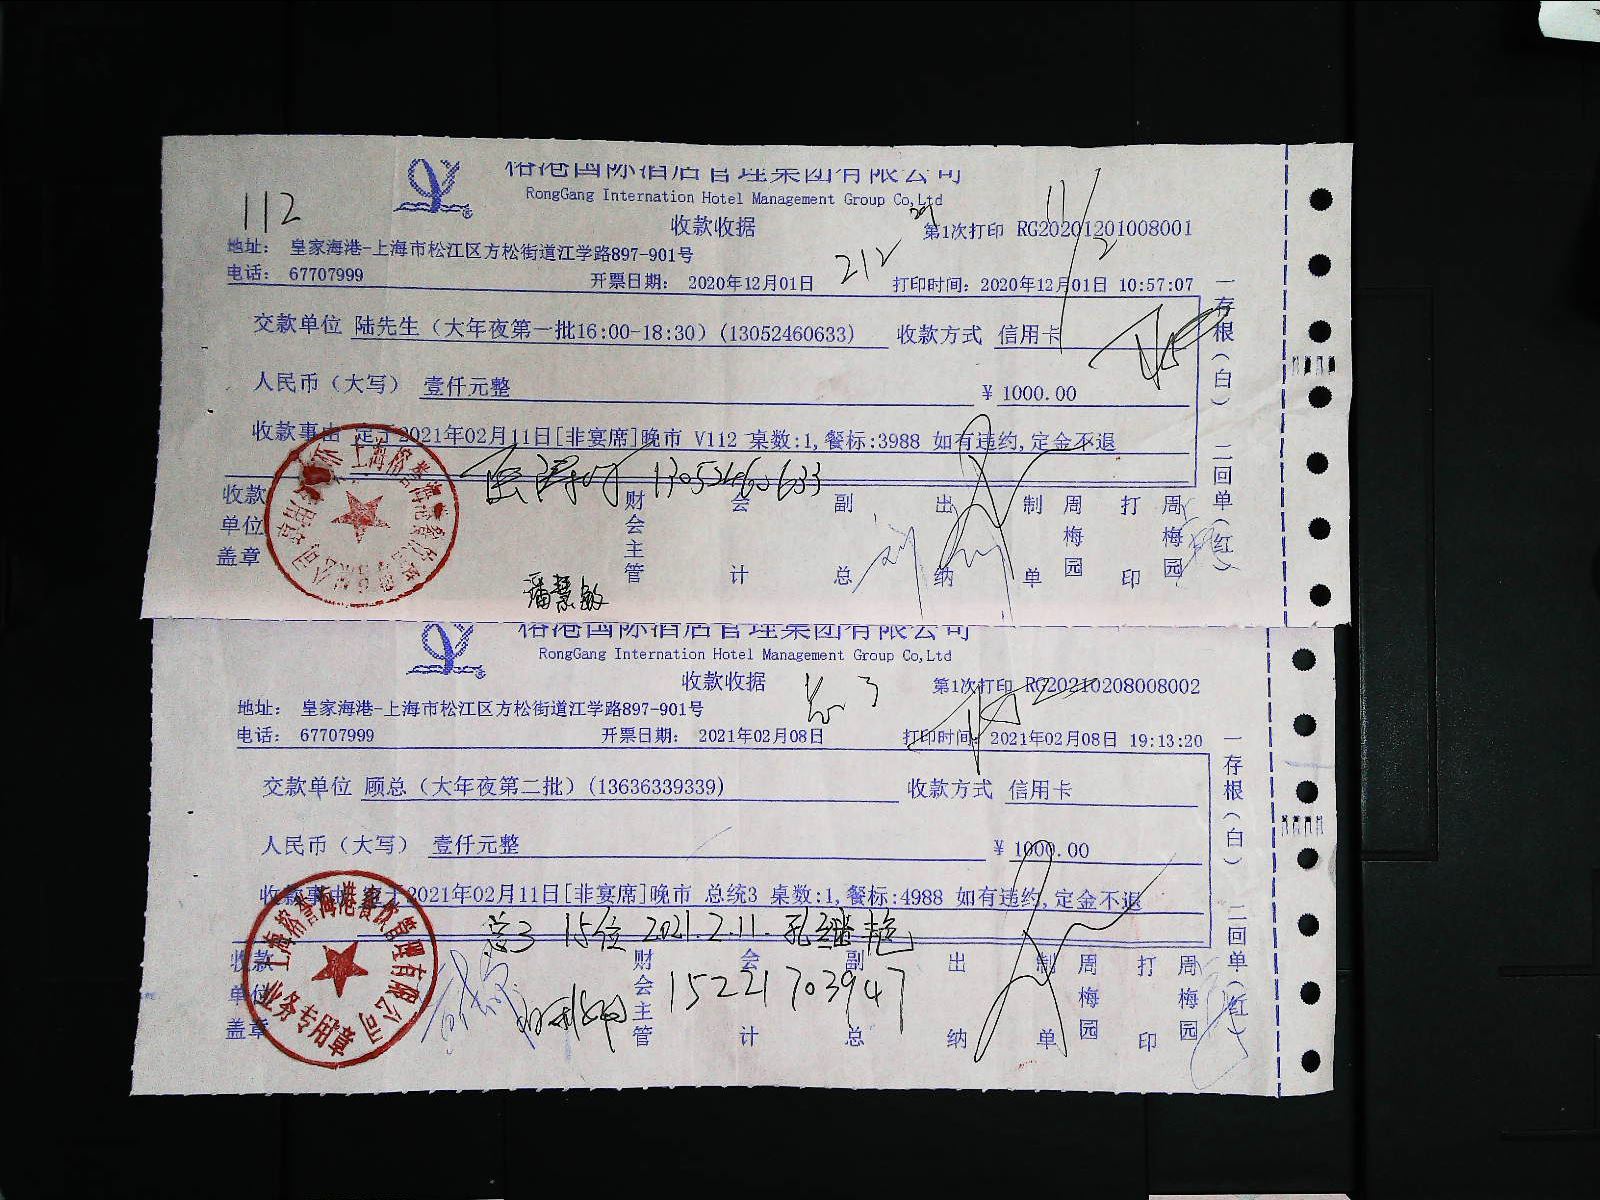 112
榕港国际酒店管理集团有限公司
RongGang Internation Hotel Management Group Co,Ltd
收款收据
第1次打印 RG20201201008001
地址: 皇家海港-上海市松江区方松街道江学路897-901号
212
11/2
电话: 67707999
开票日期: 2020年12月01日
打印时间: 2020年12月01日 10:57:07
交款单位 陆先生（大年夜第一批16:00-18:30）(13052460633)
收款方式 信用卡
人民币（大写） 壹仟元整
¥ 1000.00
收款事由 定于2021年02月11日[非宴席]晚市 V112 桌数:1,餐标:3988 如有违约,定金不退
13052460633
收款单位盖章
财会主管
会计
副总
出纳
制单
周梅园
打印
周梅园
潘慧敏
一存根(白) 二回单(红)
榕港国际酒店管理集团有限公司
RongGang Internation Hotel Management Group Co,Ltd
收款收据
总3
第1次打印 RG20210208008002
地址: 皇家海港-上海市松江区方松街道江学路897-901号
电话: 67707999
开票日期: 2021年02月08日
打印时间: 2021年02月08日 19:13:20
交款单位 顾总（大年夜第二批）(13636339339)
收款方式 信用卡
人民币（大写） 壹仟元整
¥ 1000.00
收款事由 定于2021年02月11日[非宴席]晚市 总统3 桌数:1,餐标:4988 如有违约,定金不退
总3 15位 2021.2.11. 孔继艳
15221703947
收款单位盖章
财会主管
会计
副总
出纳
制单
周梅园
打印
周梅园
一存根(白) 二回单(红)
上海榕皇海港餐饮管理有限公司
业务专用章